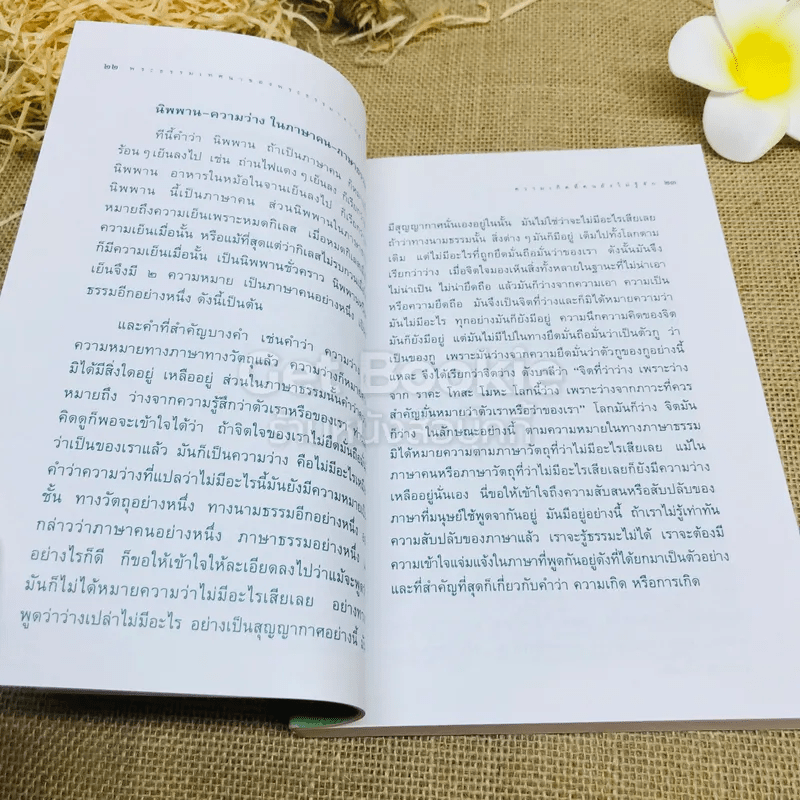 ๒๒
นิพพาน-ความว่าง ในภาษาคน-ภาษา
ทีนี้คำว่า นิพพาน ถ้าเป็นภาษาคน ก็
ร้อนๆเย็นลงไป เช่น ถ่านไฟแดงๆเย็นลง ก็เรีย
นิพพาน อาหารในหม้อในจานเย็นลงไป ก็เรีย
นิพพาน นี้เป็นภาษาคน ส่วนนิพพานในภาษา
หมายถึงความเย็นเพราะหมดกิเลส เมื่อหมดกิเลส
ก็มีความเย็นเมื่อนั้น หรือแม้ที่สุดแต่ว่ากิเลสไม่รบกวนเมื่อ
เย็นเมื่อนั้น เป็นนิพพานชั่วคราว นิพพาน
เย็นจึงมี ๒ ความหมาย เป็นภาษาคนอย่างหนึ่ง
ธรรมอีกอย่างหนึ่ง ดังนี้เป็นต้น
และคำที่สำคัญบางคำ เช่นคำว่า ความว่าง
ความหมายทางภาษาทางวัตถุแล้ว ความว่างก็หมาย
มิได้มีสิ่งใดอยู่ เหลืออยู่ ส่วนในภาษาธรรมนั้นคำว่า
หมายถึง ว่างจากความรู้สึกว่าตัวเราหรือของเรา
คิดดูก็พอจะเข้าใจได้ว่า ถ้าจิตใจของเราไม่ยึดมั่นถือ
ว่าเป็นของเราแล้ว มันก็เป็นความว่าง คือไม่มีอะไรเห
คำว่าความว่างที่แปลว่าไม่มีอะไรนี้มันยังมีความหมายเป็น
ชั้น ทางวัตถุอย่างหนึ่ง ทางนามธรรมอีกอย่างหนึ่ง
กล่าวว่าภาษาคนอย่างหนึ่ง ภาษาธรรมอย่างหนึ่ง
อย่างไรก็ดี ก็ขอให้เข้าใจให้ละเอียดลงไปว่าแม้จะพูด
มันก็ไม่ได้หมายความว่าไม่มีอะไรเสียเลย อย่างทาง
พูดว่าว่างเปล่าไม่มีอะไร อย่างเป็นสุญญากาศอย่างนี้ มัน
ความเกิดที่คนยังไม่รู้จัก ๒๓
มีสุญญากาศนั่นเองอยู่ในนั้น มันไม่ใช่ว่าจะไม่มีอะไรเสียเลย
ถ้าว่าทางนามธรรมนั้น สิ่งต่าง ๆมันก็มีอยู่ เต็มไปทั้งโลกตาม
เดิม แต่ไม่มีอะไรที่ถูกยึดมั่นถือมั่นว่าของเรา ดังนั้นมันจึง
เรียกว่าว่าง เมื่อจิตใจมองเห็นสิ่งทั้งหลายในฐานะที่ไม่น่าเอา
ไม่น่าเป็น ไม่น่ายึดถือ แล้วมันก็ว่างจากความเอา ความเป็น
หรือความยึดถือ มันจึงเป็นจิตที่ว่างและก็มิได้หมายความว่า
มันไม่มีอะไร ทุกอย่างมันก็ยังมีอยู่ ความนึกความคิดของจิต
มันก็ยังมีอยู่ แต่มันไม่มีไปในทางยึดมั่นถือมั่นว่าเป็นตัวกู ว่า
เป็นของกู เพราะมันว่างจากความยึดมั่นว่าตัวกูของกูอย่างนี้
แหละ จึงได้เรียกว่าจิตว่าง ดังบาลีว่า “จิตที่ว่าง เพราะว่าง
จาก ราคะ โทสะ โมหะ โลกนี้ว่าง เพราะว่างจากภาวะที่ควร
สำคัญมั่นหมายว่าตัวเราหรือว่าของเรา” โลกมันก็ว่าง จิตมัน
ก็ว่าง ในลักษณะอย่างนี้ ตามความหมายในทางภาษาธรรม
มิได้หมายความตามภาษาวัตถุที่ว่าไม่มีอะไรเสียเลย แม้ใน
ภาษาคนหรือภาษาวัตถุที่ว่าไม่มีอะไรเสียเลยก็ยังมีความว่าง
เหลืออยู่นั่นเอง นี่ขอให้เข้าใจถึงความสับสนหรือสับปลับของ
ภาษาที่มนุษย์ใช้พูดจากันอยู่ มันมีอยู่อย่างนี้ ถ้าเราไม่รู้เท่าทัน
ความสับปลับของภาษาแล้ว เราจะรู้ธรรมะไม่ได้ เราจะต้องมี
ความเข้าใจแจ่มแจ้งในภาษาที่พูดกันอยู่ดังที่ได้ยกมาเป็นตัวอย่าง
และที่สำคัญที่สุดก็เกี่ยวกับคำว่า ความเกิด หรือการเกิด